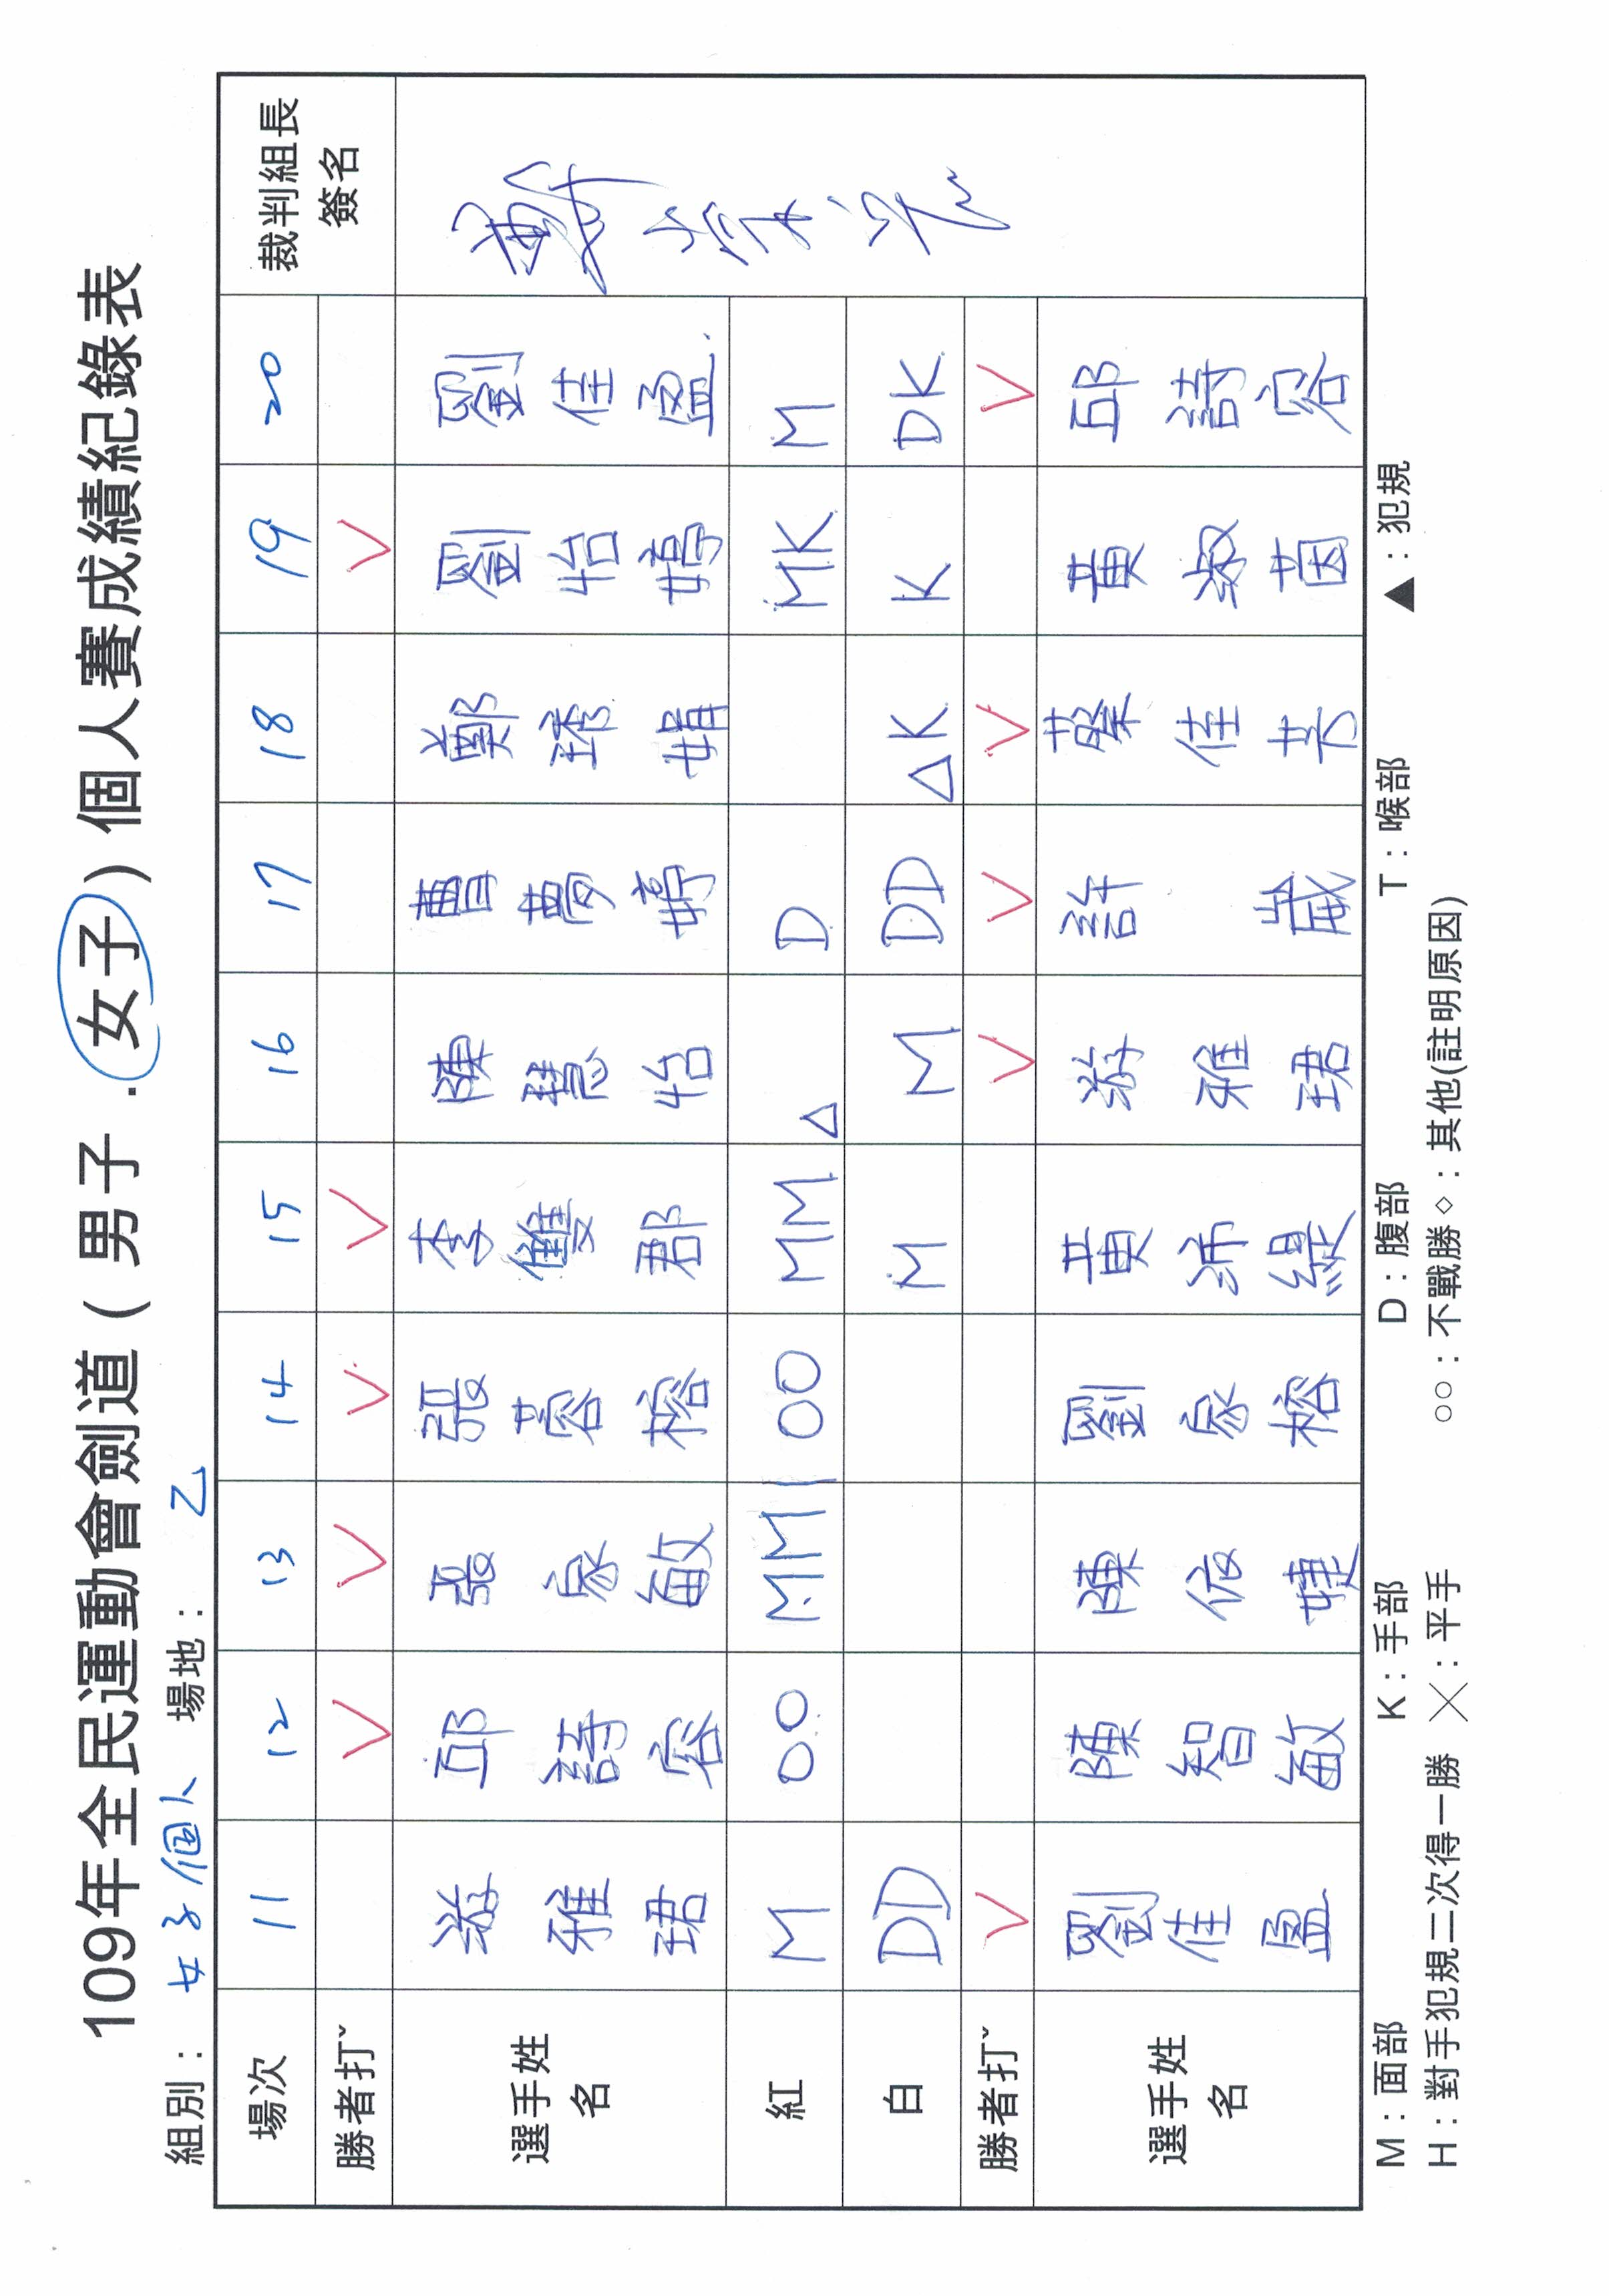 109年全民運動會劍道（男子．女子）個人賽成績紀錄表
組別： 女子個人 場地： 乙
場次 11 12 13 14 15 16 17 18 19 20 裁判組長簽名
勝者打ˇ V V V V V
選手姓名 游雅珺 邱詩容 張家敏 張蓉榕 李雙郡 陳慧怡 曹夢婷 鄭琇娟 劉怡婷 劉佳盈
紅 M OO MM OO MM △ D MK M
白 DD M M DD △K K DK
勝者打ˇ V V V V V
選手姓名 劉佳盈 陳智敏 陳依婕 劉家榕 黃沛緹 游雅珺 許葳 蔡佳芳 黃淑茵 邱詩容
M：面部 K：手部 D：腹部 T：喉部 ▲：犯規
H：對手犯規二次得一勝 ╳：平手 ○○：不戰勝◇：其他(註明原因)